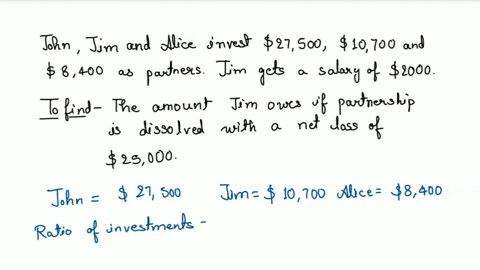 John, Jim and Alice invest $27,500, $10,700 and
$8,400 as partners. Jim gets a salary of $2000.
To find - The amount Jim owes if partnership
is dissolved with a net loss of
$25,000.
John = $ 27,500 Jim = $ 10,700 Alice = $8,400
Ratio of investments -